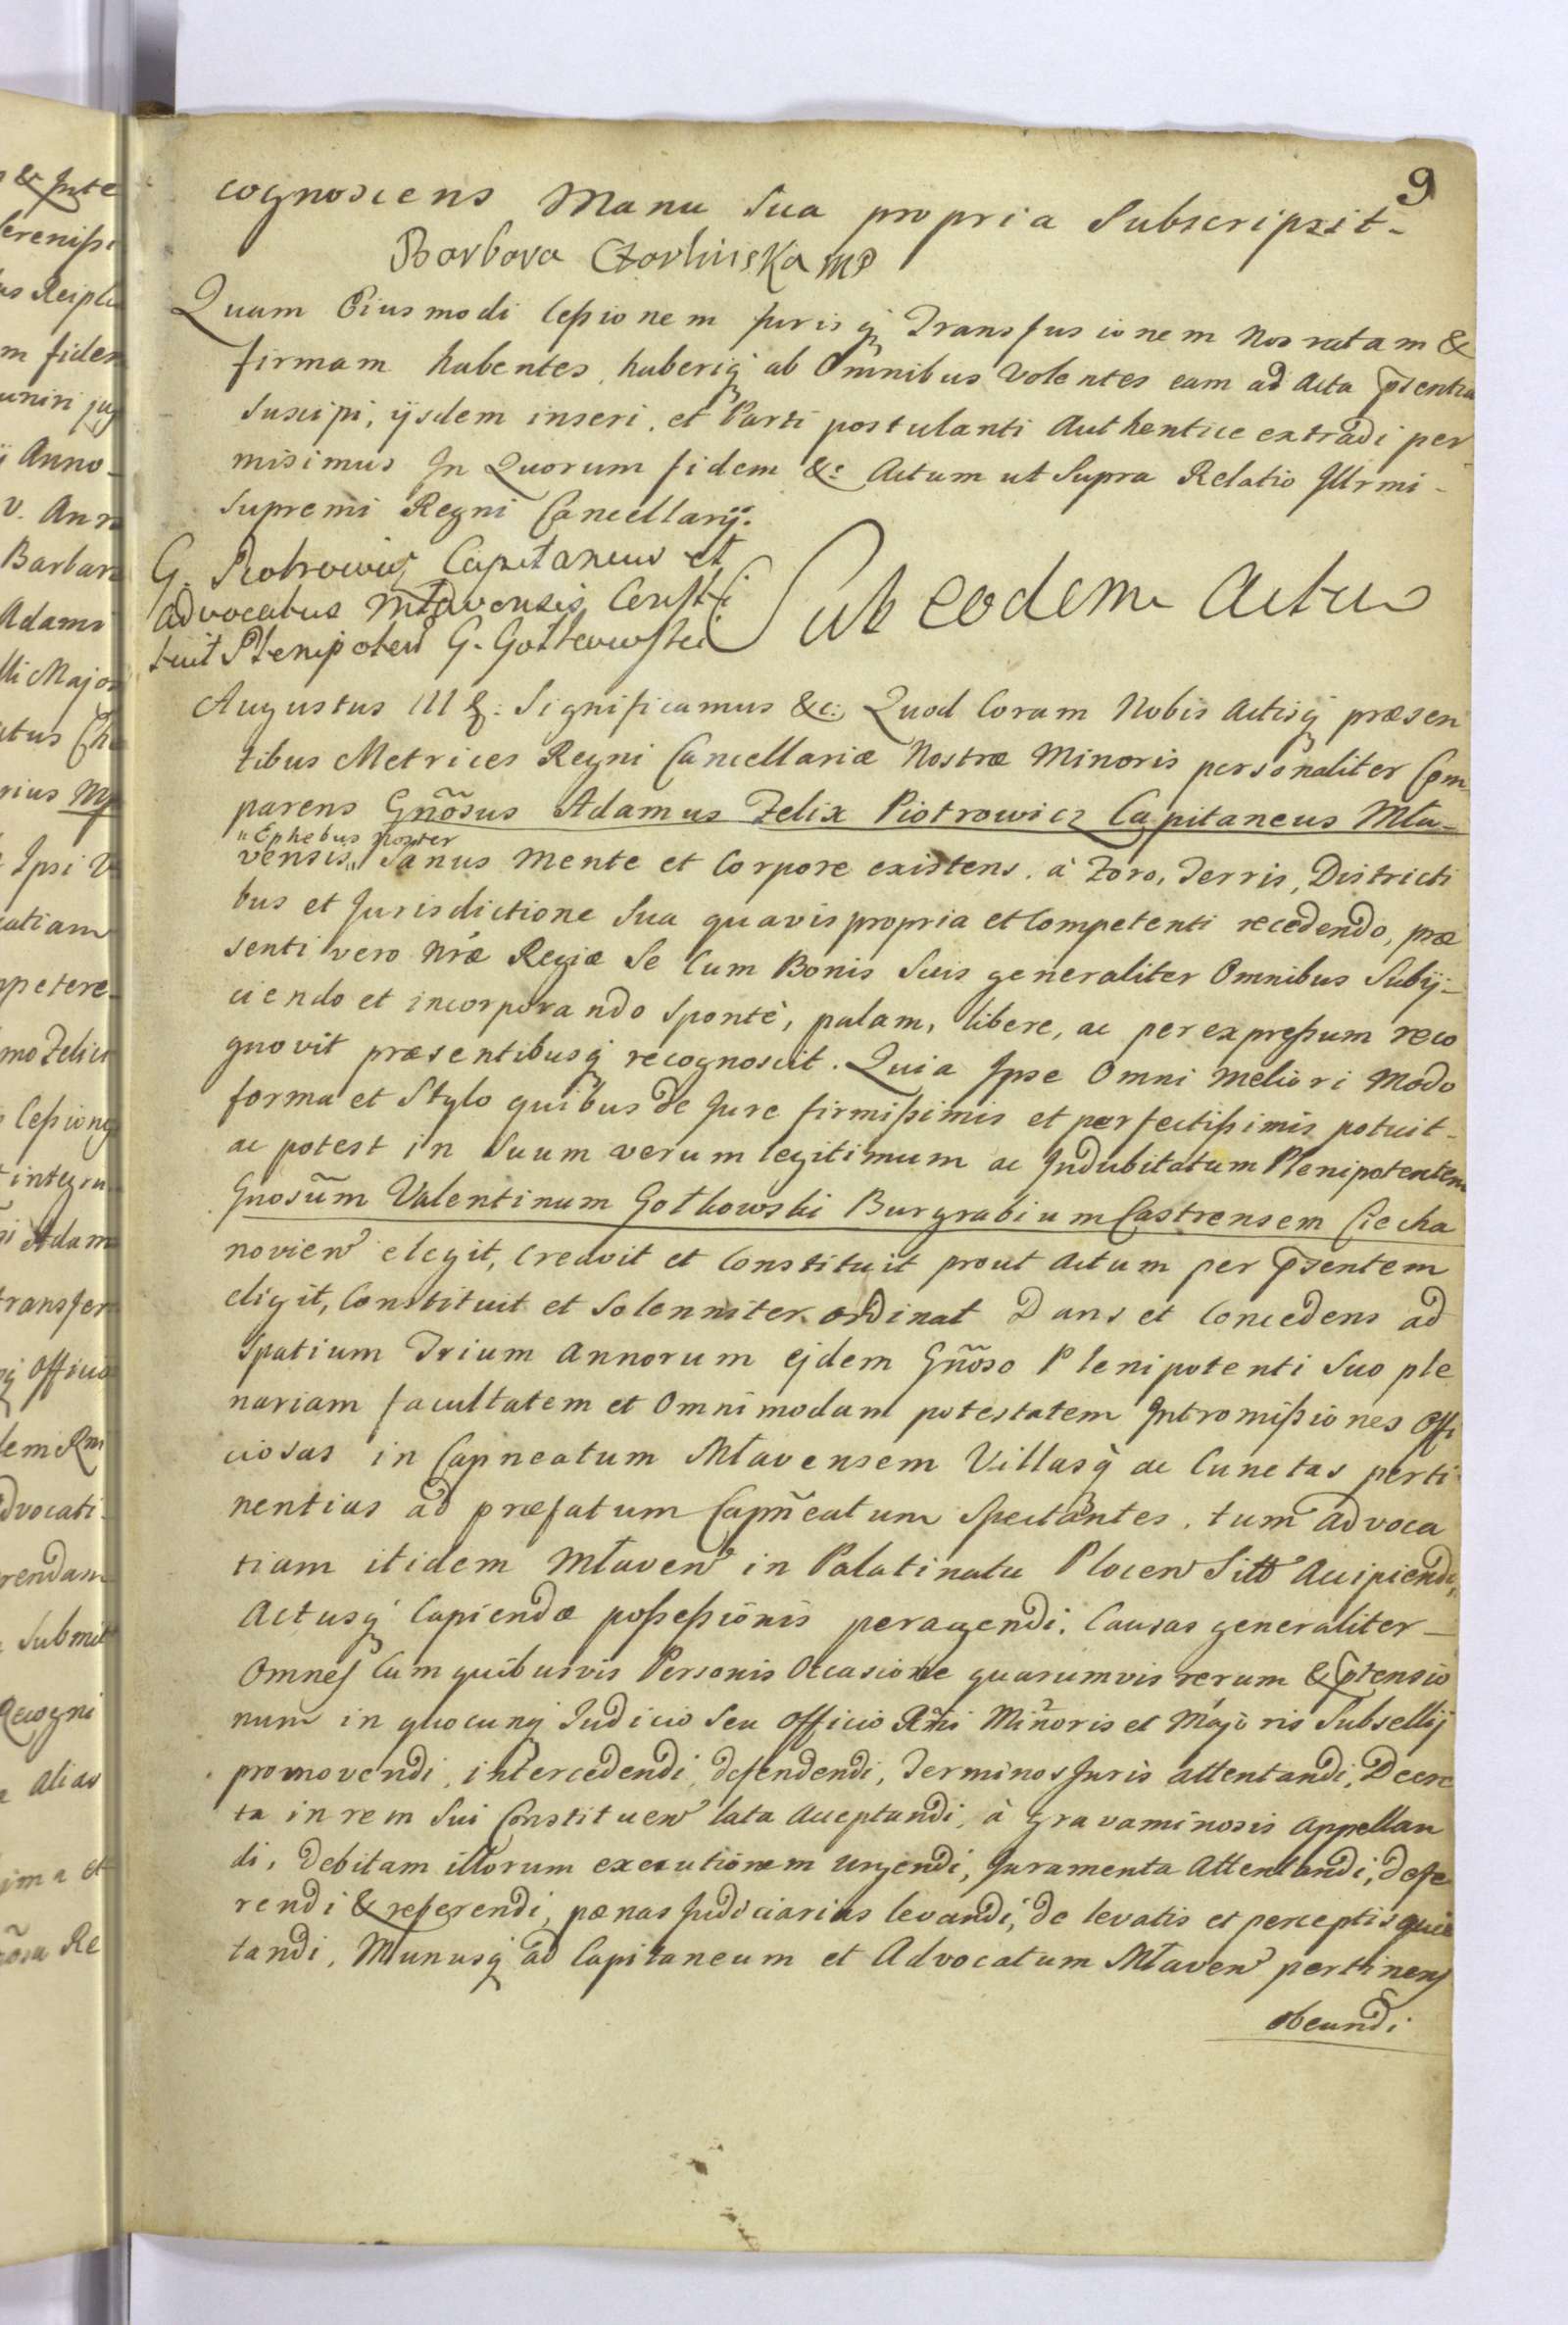 9
cognosciens Manu Sua propria Subscripsit-
Barbara MP
Quam Eiusmodi Cessionem Jurisq Transfusionem Nos ratam &
firmam habentes, haberiq ab Omnibus Volentes eam ad Acta
Suscipi, ijsdem inseri, et Parti postulanti Authentice extradi per
misimus In Quorum fidem &c Actum ut Supra Relatio Illrmi-
Supremi Regni Cancellarij.
G. Piotrowicz Capitaneus et
advocatus Młavensis Consti
tuit Plenipoten G. Gotkowski
Sub eodem Actu
Augustus III &. Significamus &c: Quod Coram Nobis Actisq præsen
tibus Metrices Regni Cancellariæ Nostræ Minoris personaliter Com
parens Gnõsus Adamus Felix Piotrowicz Capitaneus Mła-
"Ephebus Noster
vensis" Sanus Mente et Corpore existens. à Foro, Terris, Districti
bus et Jurisdictione Sua quavis propria et Competenti recedendo, præ
senti vero Nræ Regiæ Se Cum Bonis Suis generaliter Omnibus Subij-
ciendo et incorporando Sponte, palam, libere, ac per expressum reco
gnovit præsentibusq recognoscit. Quia Ipse Omni Meliori Modo
forma et Stylo quibus de Jure firmissimis et perfectissimis potuit-
ac potest in Suum verum legitimum ac Indubitatum Plenipotentem
Gnosum Valentinum Gotkowski Burgrabium Castrensem Ciecha
novien elegit, Creavit et Constituit prout Actum per pzsentem
eligit, Constituit et Solenniter ordinat Dans et Concedens ad
Spatium Trium Annorum ejdem Gnõso Plenipotenti Suo ple
nariam facultatem et Omnimodam potestatem Intromissiones Offi
ciosas in Capneatum Mławensem Villasq ac Cunctas perti
nentias ad præfatum Capneatum Spectantes, tum advoca
tiam itidem Mławen in Palatinatu Plocen Sitt Accipiendi,
Actusq Capiendæ possessionis peragendi. Causas generaliter-
Omnes Cum quibusvis Personis Occasione quarumvis rerum & ptensio
num in quocunq Judicio Seu Officio Rñi Minoris et Majoris Subsellij
promovendi, intercedendi, defendendi, Terminos Juris attentandi, Decre
ta in rem Sui Constituen lata Acceptandi, à gravaminosis appellan
di, Debitam illorum executionem urgendi, Juramenta Attentandi, defe
rendi & referendi, pænas Judiciarias levandi, de levatis et perceptis quie
tandi, Munusq ad Capitaneum et Advocatum Mławen pertinens
obeundi